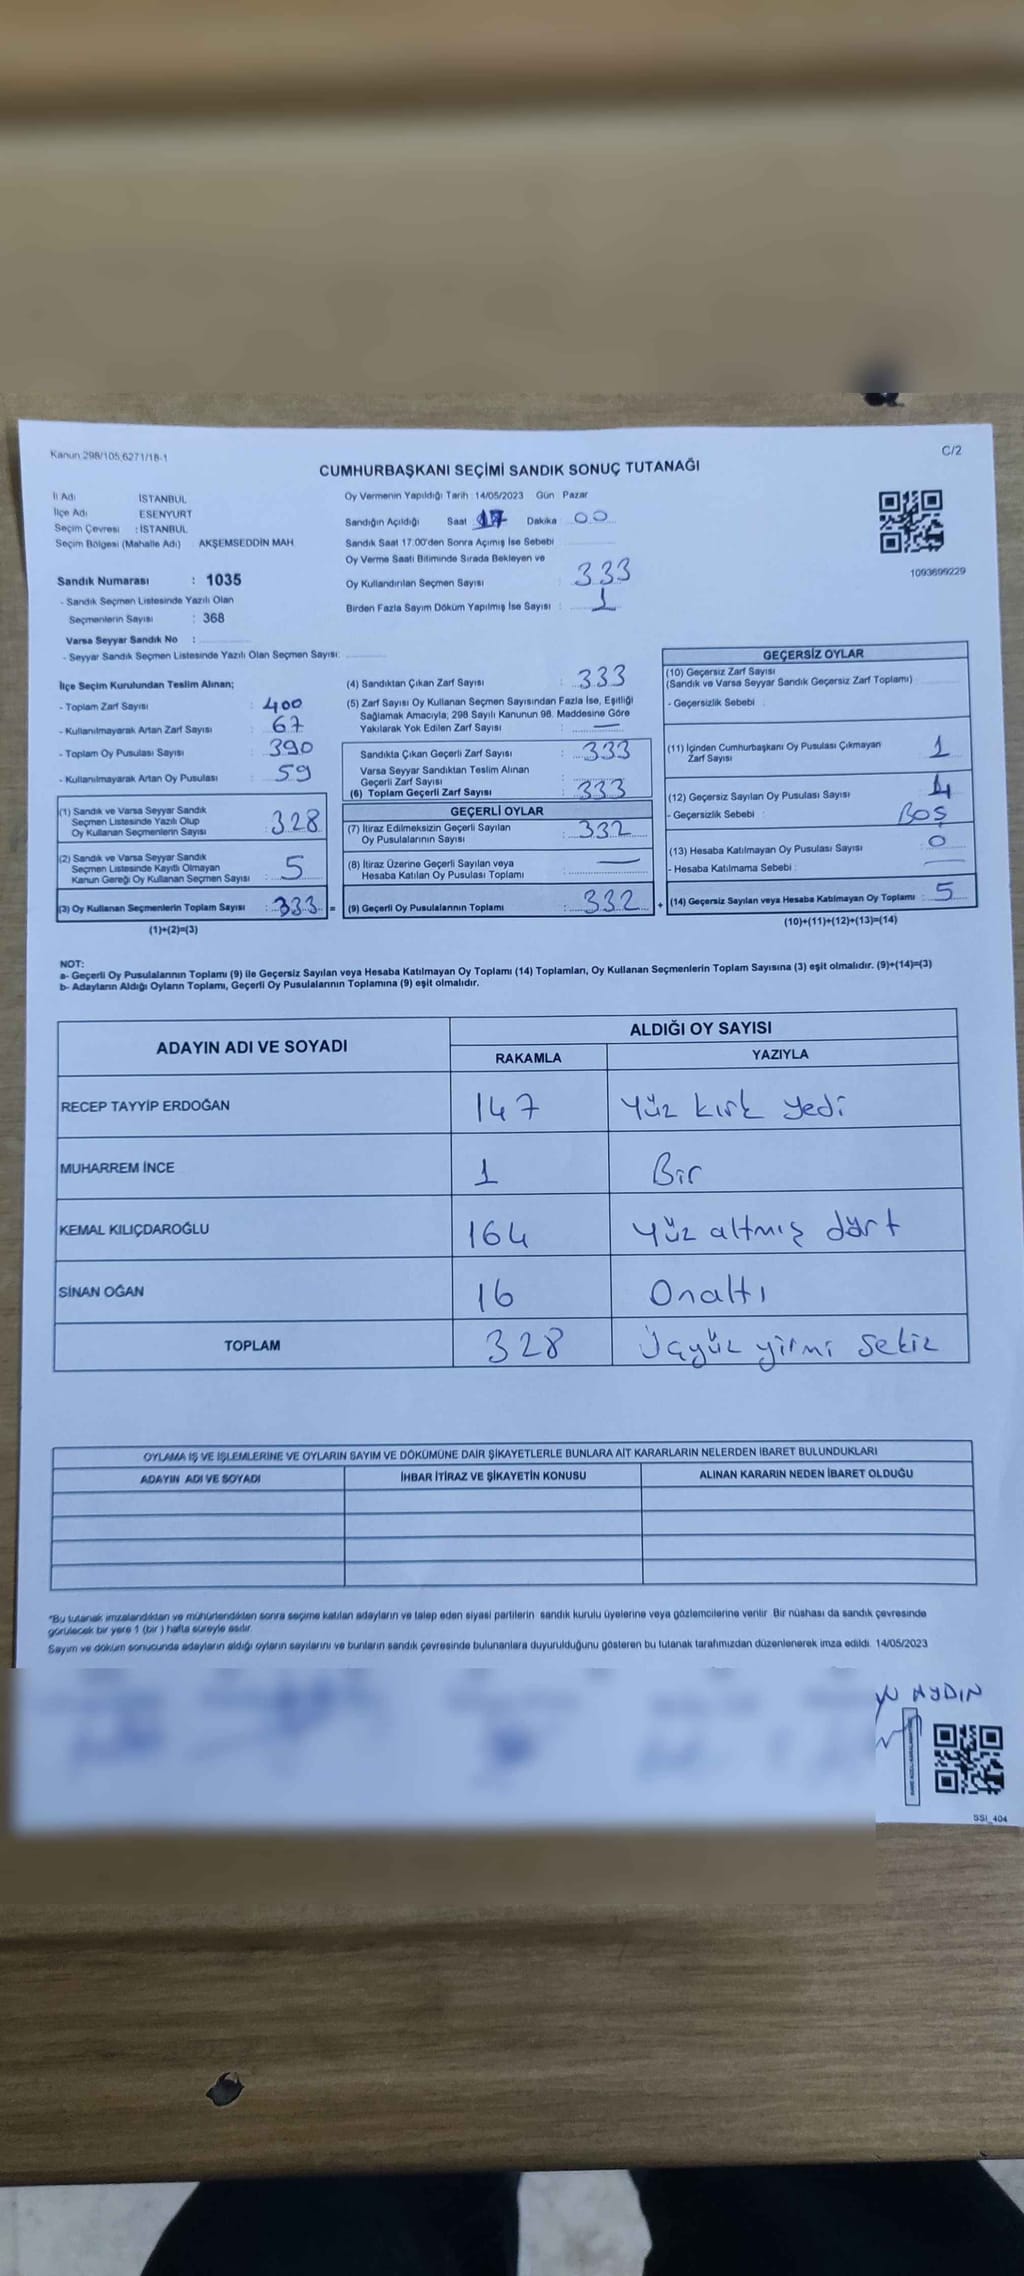 Kanun 298/105,6271/18-1
C/2
CUMHURBAŞKANI SEÇİMİ SANDIK SONUÇ TUTANAĞI
İl Adı İSTANBUL
İlçe Adı ESENYURT
Seçim Çevresi : İSTANBUL
Seçim Bölgesi (Mahalle Adı) : AKŞEMSEDDİN MAH.
Sandık Numarası : 1035
- Sandık Seçmen Listesinde Yazılı Olan
Seçmenlerin Sayısı : 368
Varsa Seyyar Sandık No :
- Seyyar Sandık Seçmen Listesinde Yazılı Olan Seçmen Sayısı:
Oy Vermenin Yapıldığı Tarih : 14/05/2023 Gün Pazar
Sandığın Açıldığı Saat 17 Dakika 00
Sandık Saat 17.00'den Sonra Açımış İse Sebebi
Oy Verme Saati Bitiminde Sırada Bekleyen ve
Oy Kullandırılan Seçmen Sayısı : 333
Birden Fazla Sayım Döküm Yapılmış İse Sayısı : 1
1093699229
İlçe Seçim Kurulundan Teslim Alınan;
- Toplam Zarf Sayısı : 400
- Kullanılmayarak Artan Zarf Sayısı : 67
- Toplam Oy Pusulası Sayısı : 390
- Kullanılmayarak Artan Oy Pusulası : 59
(1) Sandık ve Varsa Seyyar Sandık
Seçmen Listesinde Yazılı Olup
Oy Kullanan Seçmenlerin Sayısı : 328
(2) Sandık ve Varsa Seyyar Sandık
Seçmen Listesinde Kayıtlı Olmayan
Kanun Gereği Oy Kullanan Seçmen Sayısı : 5
(3) Oy Kullanan Seçmenlerin Toplam Sayısı : 333 =
(1)+(2)=(3)
(4) Sandıktan Çıkan Zarf Sayısı : 333
(5) Zarf Sayısı Oy Kullanan Seçmen Sayısından Fazla İse, Eşitliği
Sağlamak Amacıyla; 298 Sayılı Kanunun 98. Maddesine Göre
Yakılarak Yok Edilen Zarf Sayısı : —
Sandıkta Çıkan Geçerli Zarf Sayısı : 333
Varsa Seyyar Sandıktan Teslim Alınan
Geçerli Zarf Sayısı :
(6) Toplam Geçerli Zarf Sayısı : 333
GEÇERLİ OYLAR
(7) İtiraz Edilmeksizin Geçerli Sayılan
Oy Pusulalarının Sayısı : 332
(8) İtiraz Üzerine Geçerli Sayılan veya
Hesaba Katılan Oy Pusulası Toplamı : —
(9) Geçerli Oy Pusulalarının Toplamı : 332 +
GEÇERSİZ OYLAR
(10) Geçersiz Zarf Sayısı
(Sandık ve Varsa Seyyar Sandık Geçersiz Zarf Toplamı) :
- Geçersizlik Sebebi :
(11) İçinden Cumhurbaşkanı Oy Pusulası Çıkmayan
Zarf Sayısı 1
(12) Geçersiz Sayılan Oy Pusulası Sayısı : 4
- Geçersizlik Sebebi : BOŞ
(13) Hesaba Katılmayan Oy Pusulası Sayısı : 0
- Hesaba Katılmama Sebebi : —
(14) Geçersiz Sayılan veya Hesaba Katılmayan Oy Toplamı : 5
(10)+(11)+(12)+(13)=(14)
NOT:
a- Geçerli Oy Pusulalarının Toplamı (9) ile Geçersiz Sayılan veya Hesaba Katılmayan Oy Toplamı (14) Toplamları, Oy Kullanan Seçmenlerin Toplam Sayısına (3) eşit olmalıdır. (9)+(14)=(3)
b- Adayların Aldığı Oyların Toplamı, Geçerli Oy Pusulalarının Toplamına (9) eşit olmalıdır.
ADAYIN ADI VE SOYADI
ALDIĞI OY SAYISI
RAKAMLA YAZIYLA
RECEP TAYYİP ERDOĞAN 147 Yüz kırk yedi
MUHARREM İNCE 1 Bir
KEMAL KILIÇDAROĞLU 164 Yüz altmış dört
SİNAN OĞAN 16 Onaltı
TOPLAM 328 Üçyüz yirmi sekiz
OYLAMA İŞ VE İŞLEMLERİNE VE OYLARIN SAYIM VE DÖKÜMÜNE DAİR ŞİKAYETLERLE BUNLARA AİT KARARLARIN NELERDEN İBARET BULUNDUKLARI
ADAYIN ADI VE SOYADI İHBAR İTİRAZ VE ŞİKAYETİN KONUSU ALINAN KARARIN NEDEN İBARET OLDUĞU
*Bu tutanak imzalandıktan ve mühürlendikten sonra seçime katılan adayların ve talep eden siyasi partilerin sandık kurulu üyelerine veya gözlemcilerine verilir. Bir nüshası da sandık çevresinde
görülecek bir yere 1 (bir) hafta süreyle asılır.
Sayım ve döküm sonucunda adayların aldığı oyların sayılarını ve bunların sandık çevresinde bulunanlara duyurulduğunu gösteren bu tutanak tarafımızdan düzenlenerek imza edildi. 14/05/2023
AYDIN
SSI_404